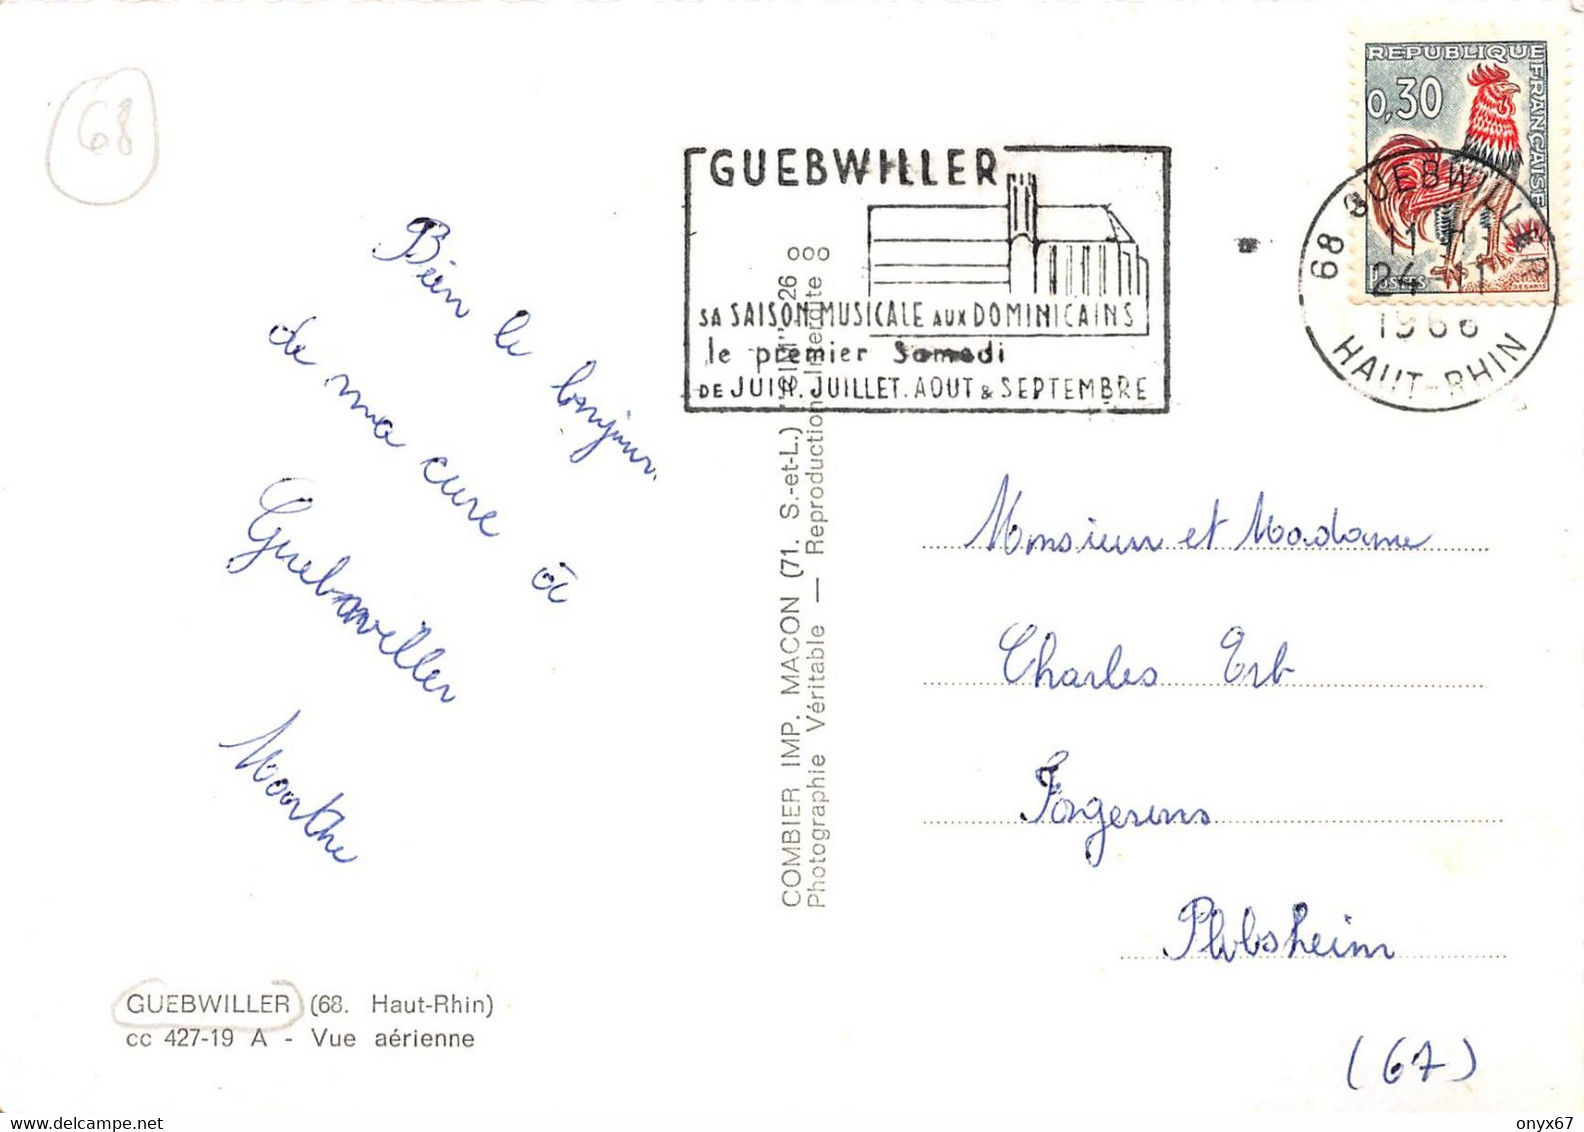 68
RÉPUBLIQUE
FRANÇAISE
0,30
POSTES
DECARIS
GUEBWILLER
SA SAISON MUSICALE AUX DOMINICAINS
le premier Samedi
DE JUIN. JUILLET. AOUT & SEPTEMBRE
68 GUEBWILLER
11 H
24 - 11
1966
HAUT-RHIN
Bien le bonjour
de ma cure à
Guebwiller
Marthe
COMBIER IMP. MACON (71. S.-et-L.) "CIM" 26
Photographie Véritable — Reproduction Interdite
Monsieur et Madame
Charles Erb
Plobsheim
(67)
GUEBWILLER (68. Haut-Rhin)
cc 427-19 A - Vue aérienne
delcampe.net
onyx67